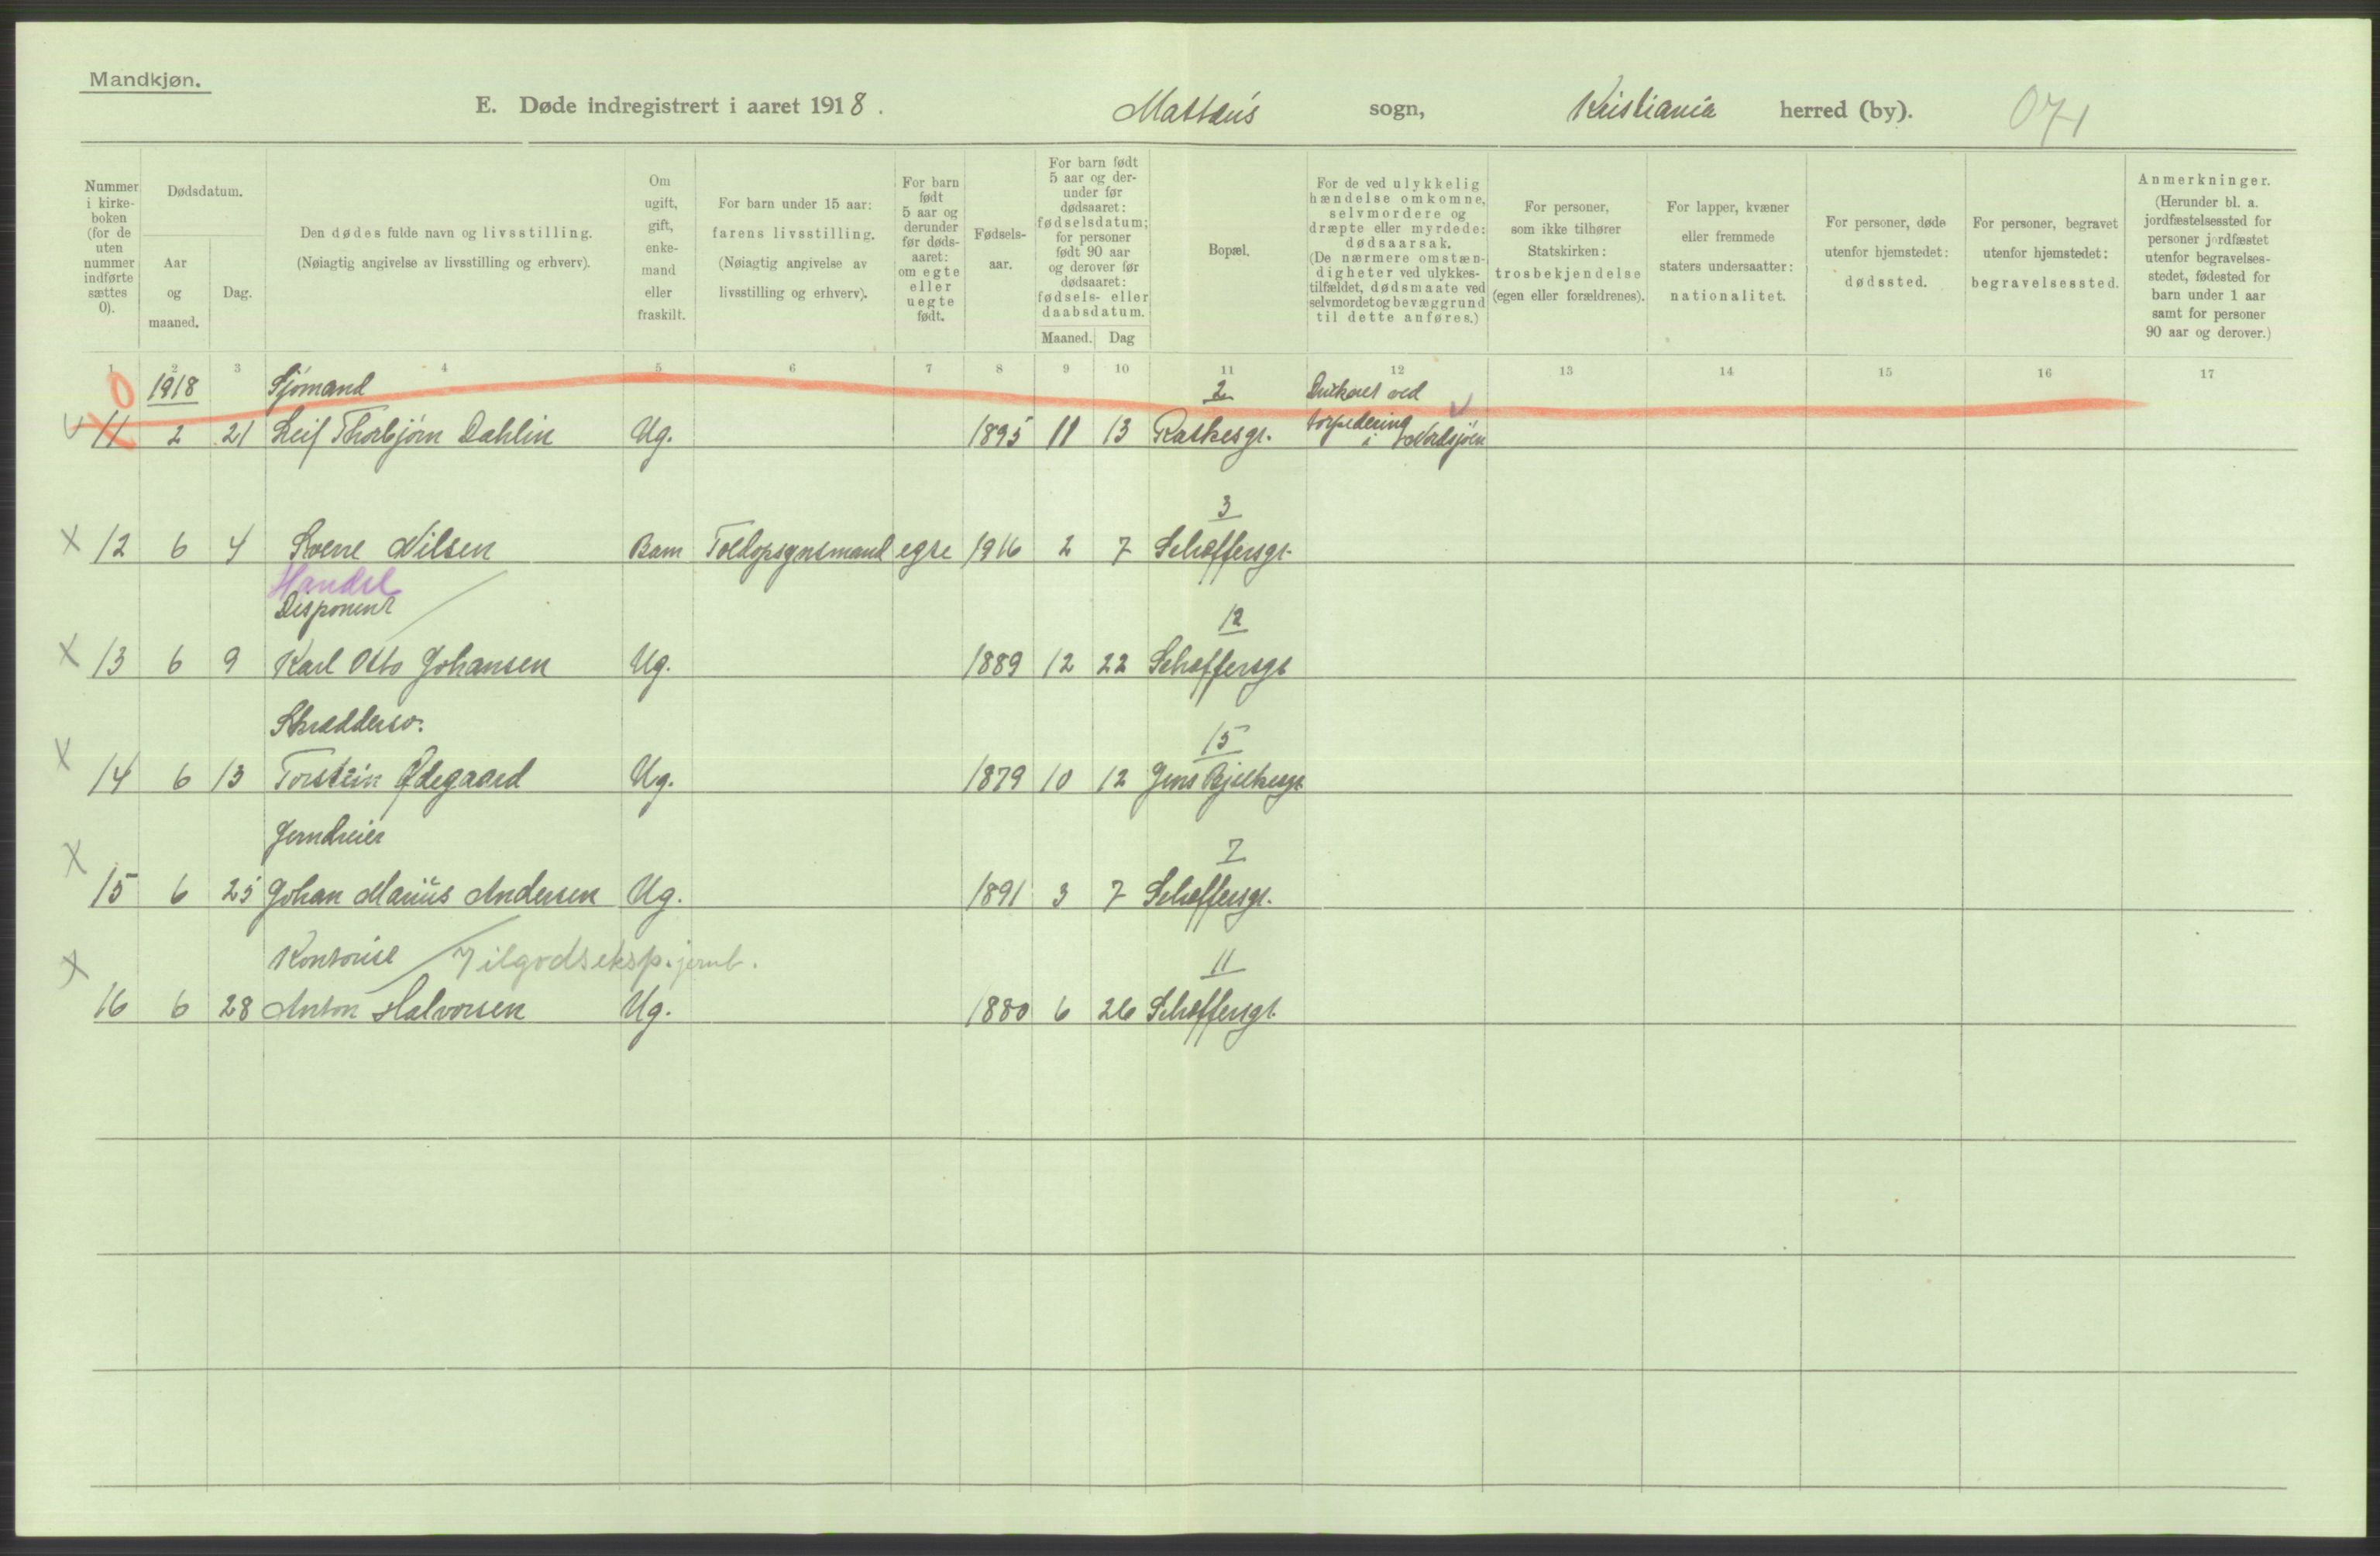 Mandkjøn.
E. Døde indregistrert i aaret 1918. Mattæus sogn, Kristiania herred (by). 071
Nummer i kirke- boken (for de uten nummer indførte sættes 0).
Dødsdatum.
Aar og maaned.
Dag.
Den dødes fulde navn og livsstilling.
(Nøiagtig angivelse av livsstilling og erhverv).
Om ugift, gift, enke- mand eller fraskilt.
For barn under 15 aar: farens livsstilling.
(Nøiagtig angivelse av livsstilling og erhverv).
For barn født 5 aar og derunder før døds- aaret: om egte eller uegte født.
Fødsels- aar.
For barn født 5 aar og der- under før dødsaaret: fødselsdatum; for personer født 90 aar og derover før dødsaaret: fødsels- eller daabsdatum.
Maaned. Dag
Bopæl.
For de ved ulykkelig hændelse omkomne, selvmordere og dræpte eller myrdede: dødsaarsak.
(De nærmere omstæn- digheter ved ulykkes- tilfældet, dødsmaate ved selvmordet og bevæggrund til dette anføres.)
For personer, som ikke tilhører Statskirken: trosbekjendelse (egen eller forældrenes).
For lapper, kvæner eller fremmede staters undersaatter: nationalitet.
For personer, døde utenfor hjemstedet: dødssted.
For personer, begravet utenfor hjemstedet: begravelsessted.
Anmerkninger.
(Herunder bl. a. jordfæstelsessted for personer jordfæstet utenfor begravelses- stedet, fødested for barn under 1 aar samt for personer 90 aar og derover.)
1 2 3 4 5 6 7 8 9 10 11 12 13 14 15 16 17
0 1918 Sjömand 2 Druknet ved
11 2 21 Leif Thorbjörn Dahlin Ug. 1895 11 13 Raskesgt. torpedering
i Nordsjöen
3
x 12 6 4 Sverre Nilsen Barn Toldopsynsmand egte 1916 2 7 Schæffersgt.
Handel
Disponent 12
x 13 6 9 Karl Otto Johansen Ug. 1889 12 22 Schæffersgt
Skræddersv. 15
x 14 6 13 Torstein Ødegaard Ug. 1879 10 12 Jens Bjelkesgt
Jerndreier 7
x 15 6 25 Johan Marius Andersen Ug. 1891 3 7 Schæffersgt.
Kontorist / Tilgodseksp. jernb. 11
x 16 6 28 Anton Halvorsen Ug. 1880 6 26 Schæffersgt.